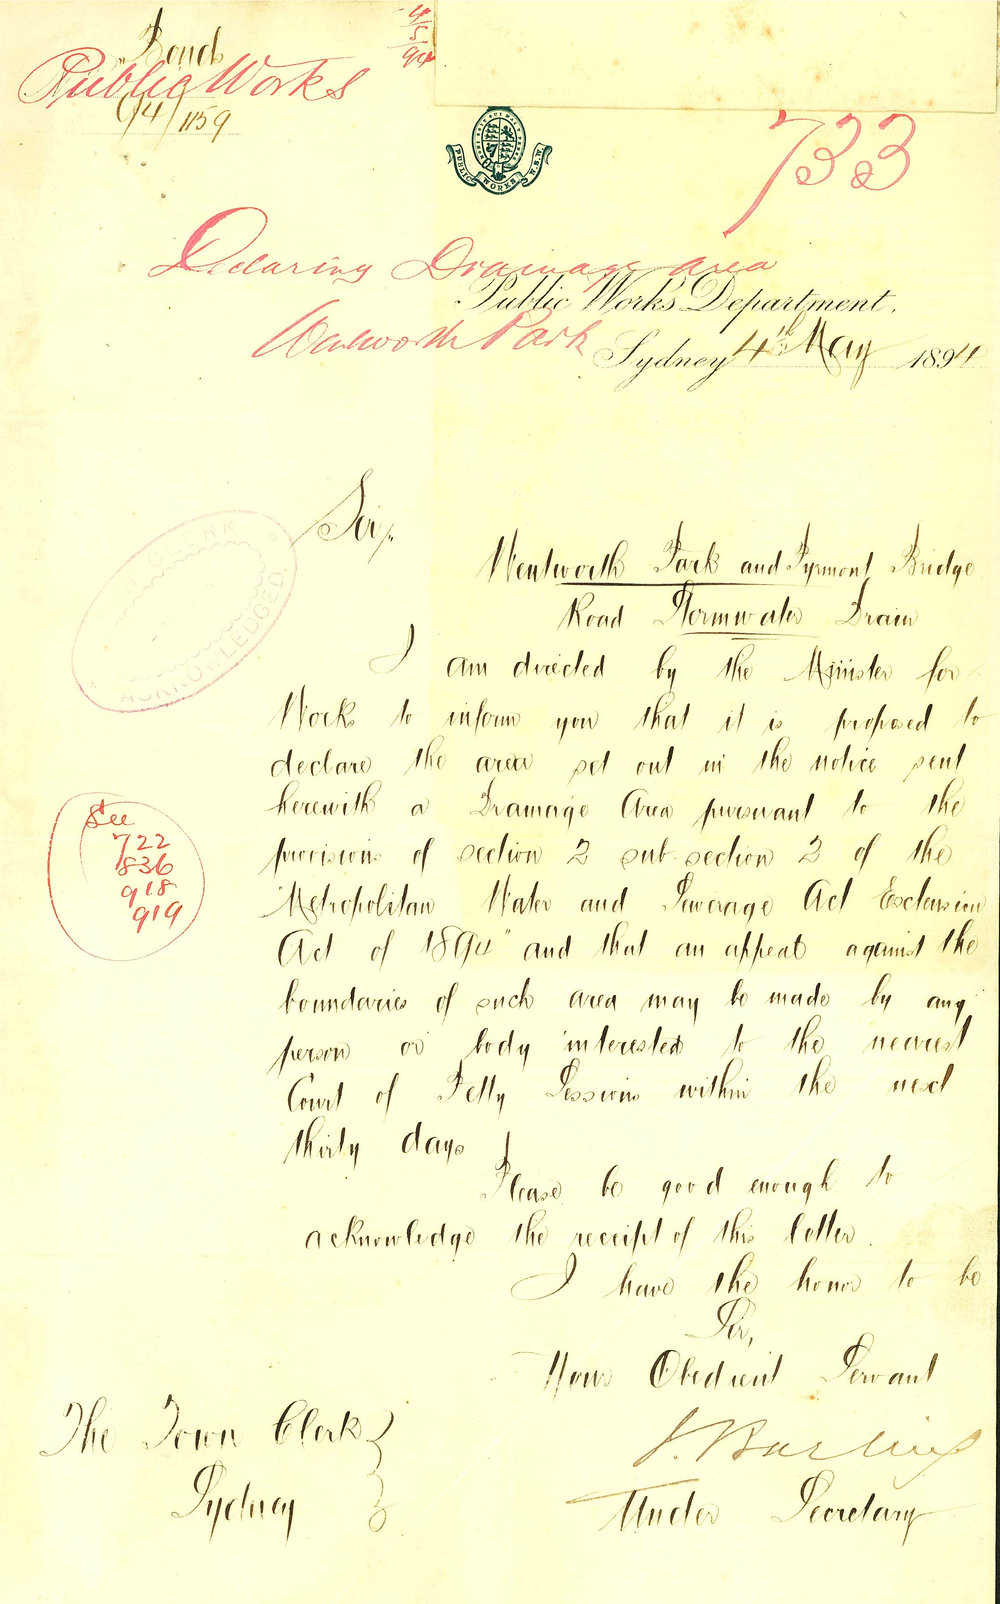 Roads
Public Works
94/1159
4/5/94
733
PUBLIC WORKS N.S.W.
Declaring Drainage area
Public Works Department.
Wentworth Park
Sydney 4th May 1894
Sir,
CLERK
ACKNOWLEDGED.
Wentworth Park and Pyrmont Bridge
Road Stormwater Drain
I am directed by the Minister for
Works to inform you that it is proposed to
declare the area set out in the notice sent
herewith a Drainage Area pursuant to the
provisions of section 2 sub-section 2 of the
"Metropolitan Water and Sewerage Act Extension
Act of 1894" and that an appeal against the
boundaries of such area may be made by any
person or body interested to the nearest
Court of Petty Sessions within the next
thirty days
See
722
836
918
919
Please be good enough to
acknowledge the receipt of this letter.
I have the honor to be
Sir,
Your Obedient Servant
J. Barling
Under Secretary
The Town Clerk
Sydney